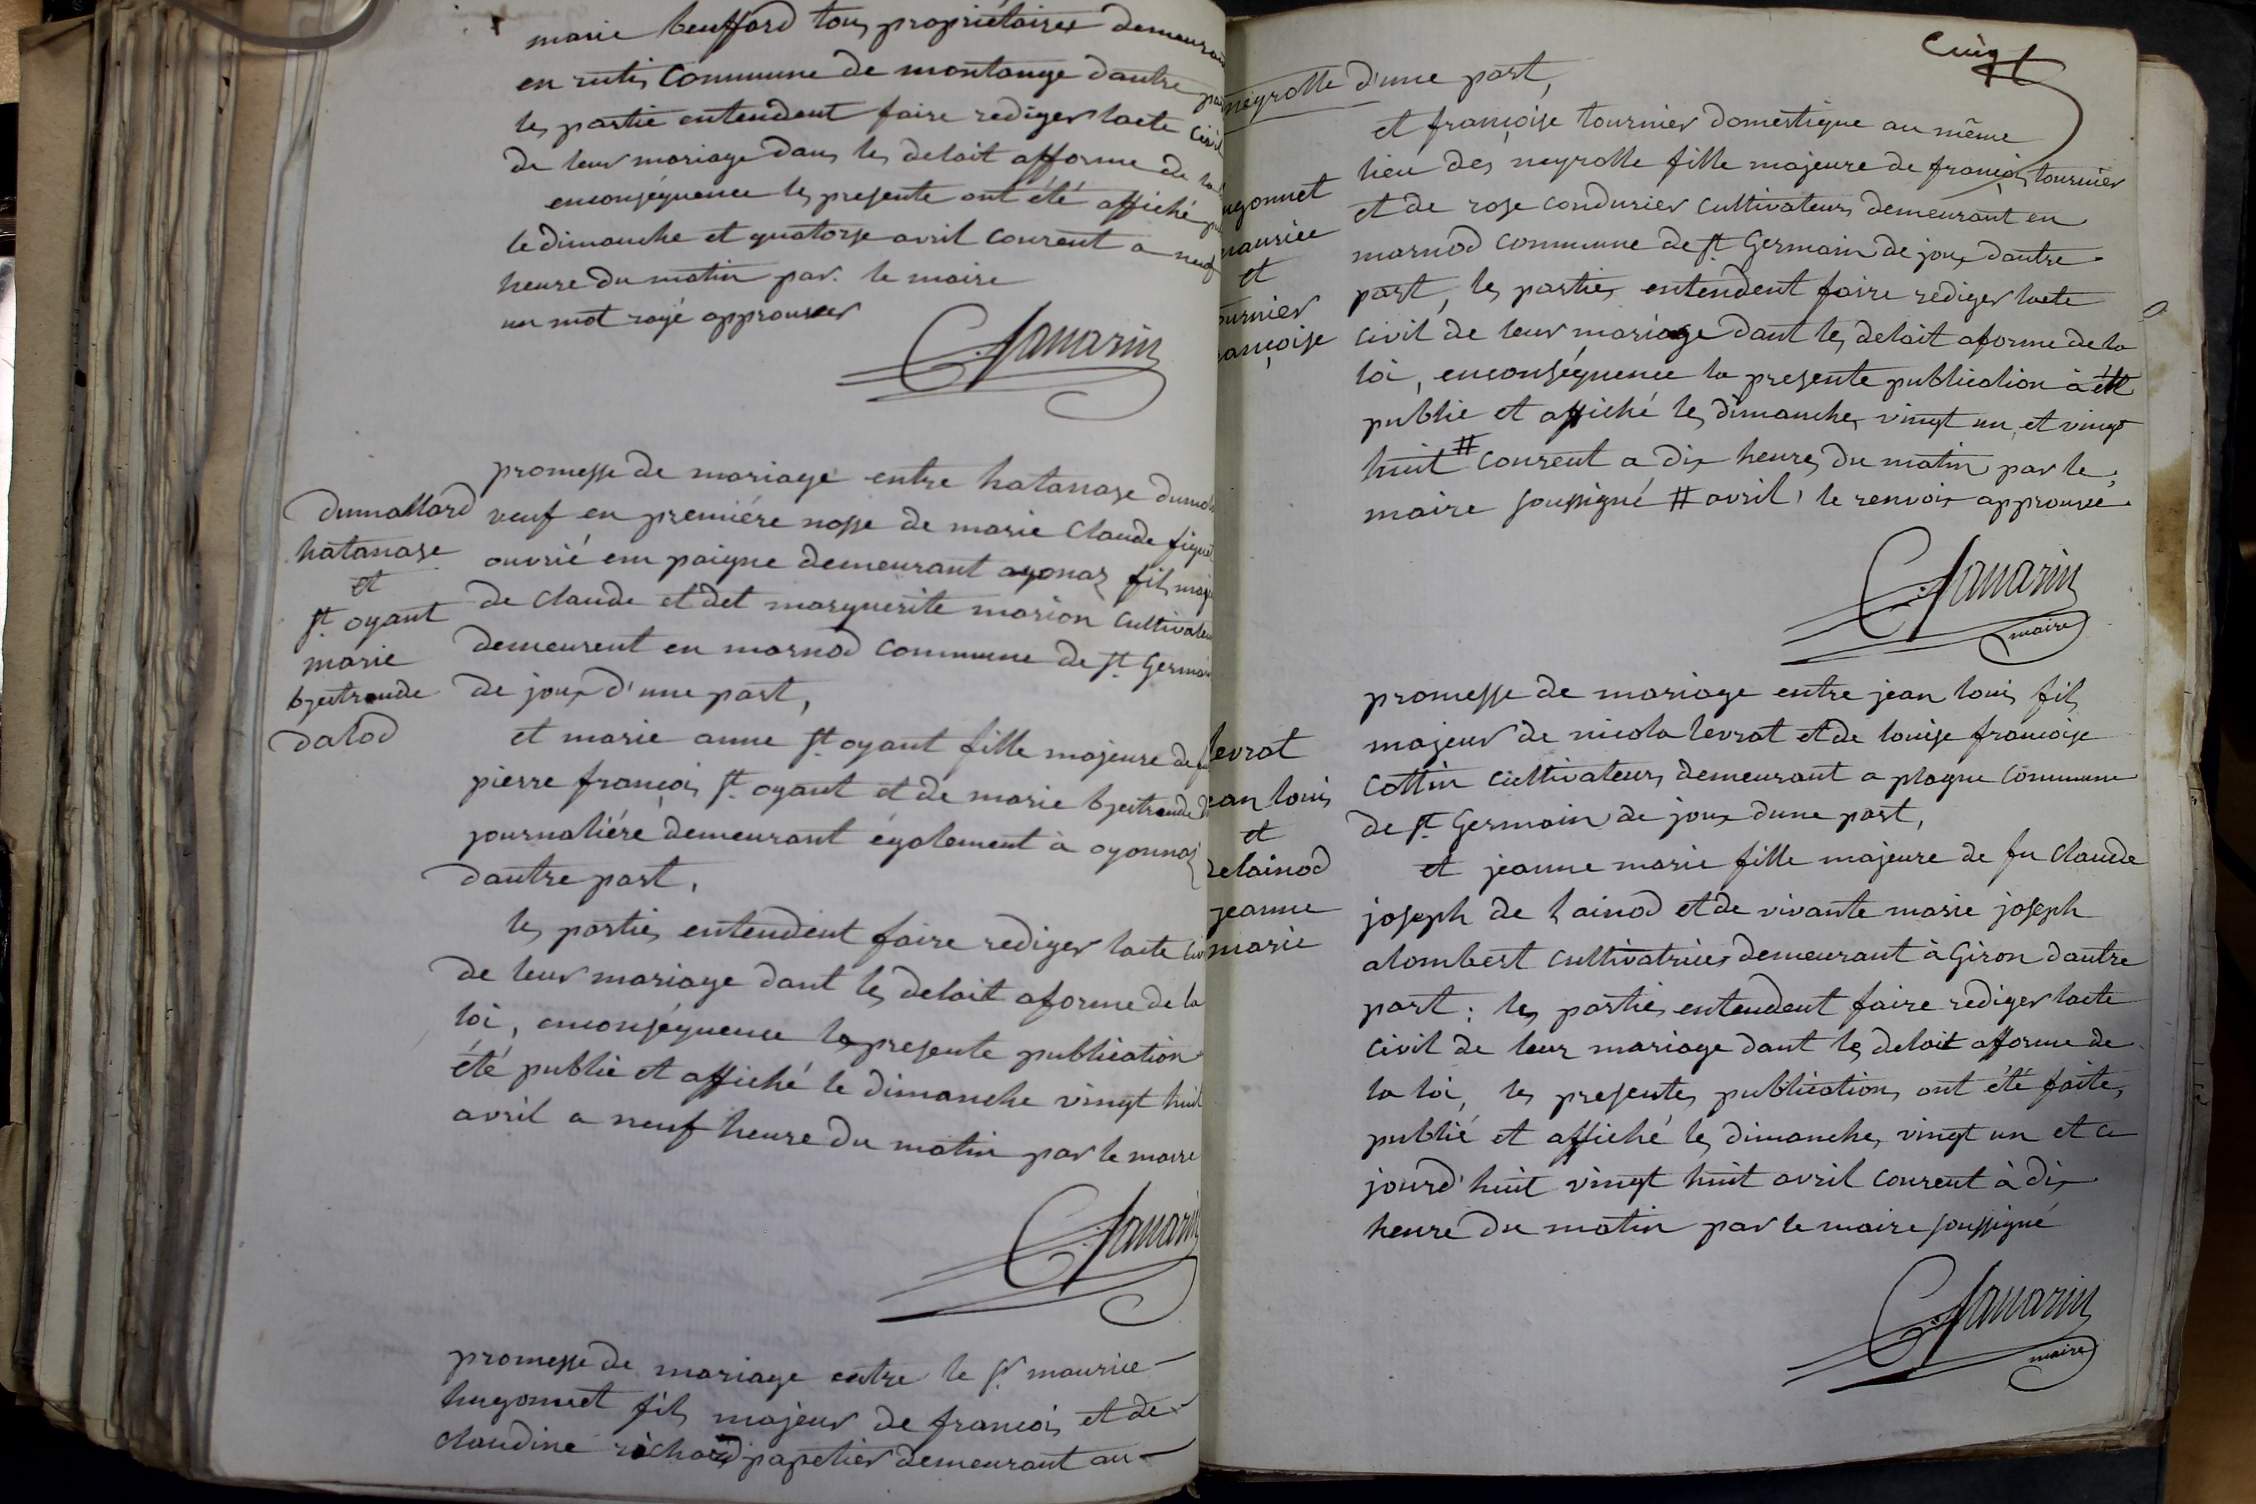 marie beuffard tous propriétaires demeurant
en rutis commune de montange dautre part
les partie entendent faire rediger lacte civil
de leur mariage dans les delait afforme de la
enconséquence les presente ont été affiché
le dimanche et quatorse avril courent a neuf
heure du matin par le maire
un mot rayé approuver
C. Savarin
dumollard
hatanase
et
st. oyant
marie
bjertrende
dalod
promesse de mariage entre hatanase dumol
veuf en premiére nosse de marie claude
ouvrié em paigne demeurant ayonaz fils maj
de claude et det marguerite marion cultivateu
demeurent en marnod commune de st. Germain
de joux d'une part,
et marie anne st. oyant fille majeure de
pierre françois st. oyant et de marie bjertrende
journaliére demeurant également à oyonnaz
dautre part,
les parties entendent faire rediger lacte
de leur mariage dant les delait aforme de la
loi, enconséquence la presente publication
été publie et affiché le dimanche vingt huit
avril a neuf heure du matin par le maire
C. Savarin
promesse de mariage entre le sr. maurice
hugonnet fils majeur de francois et de
claudine richard papetier demeurant au
cinq
neyrolle d'une part,
ugonnet
maurice
et
ournier
ançoise
et françoise tournier domestique au même
lieu des neyrolle fille majeure de françois tournier
et de rose condurier cultivateurs demeurant en
marnod commune de st. Germain de joux dautre
part, les parties entendent faire rediger lacte
civil de leur mariage dant les delait aforme de la
loi, enconséquence la presente publication à été
publie et affiché les dimanches vingt un et vingt
huit # courent a dix heures du matin par le
maire soussigné # avril, le renvois approuvée
C. Savarin
maire
levrat
ean louis
et
delainod
jeanne
marie
promesse de mariage entre jean louis fils
majeur de nicola levrat et de louise francoise
cottin cultivateurs demeurant a plagne commune
de st. Germain de joux dune part,
et jeanne marie fille majeure de fu claude
joseph de lainod et de vivante marie joseph
alombert cultivatrices demeurant à Giron dautre
part: les parties entendent faire rediger lacte
civil de leur mariage dant les delait afforme de
la loi, les presentes publications ont été faites,
publié et affiché les dimanches vingt un et ce
jourd'huit vingt huit avril courent à dix
heure du matin par le maire soussigné
C. Savarin
maire